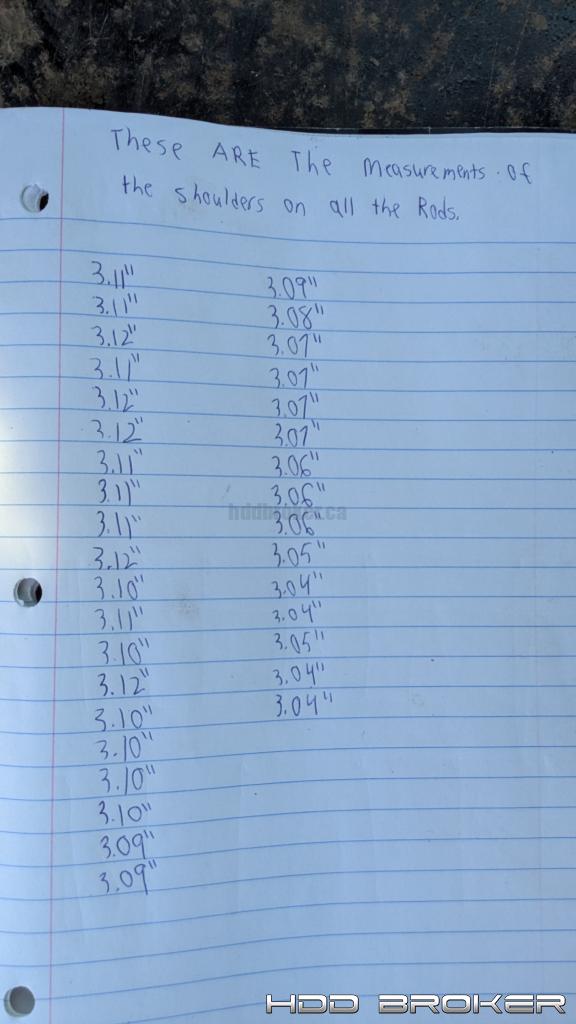 These ARE The Measurements of
the shoulders on all the Rods.
3.11"
3.11"
3.12"
3.11"
3.12"
3.12"
3.11"
3.11"
3.11"
3.12"
3.10"
3.11"
3.10"
3.12"
3.10"
3.10"
3.10"
3.10"
3.09"
3.09"
3.09"
3.08"
3.07"
3.07"
3.07"
3.07"
3.06"
3.06"
3.06"
3.05"
3.04"
3.04"
3.05"
3.04"
3.04"
hddbroker.ca
HDD BROKER